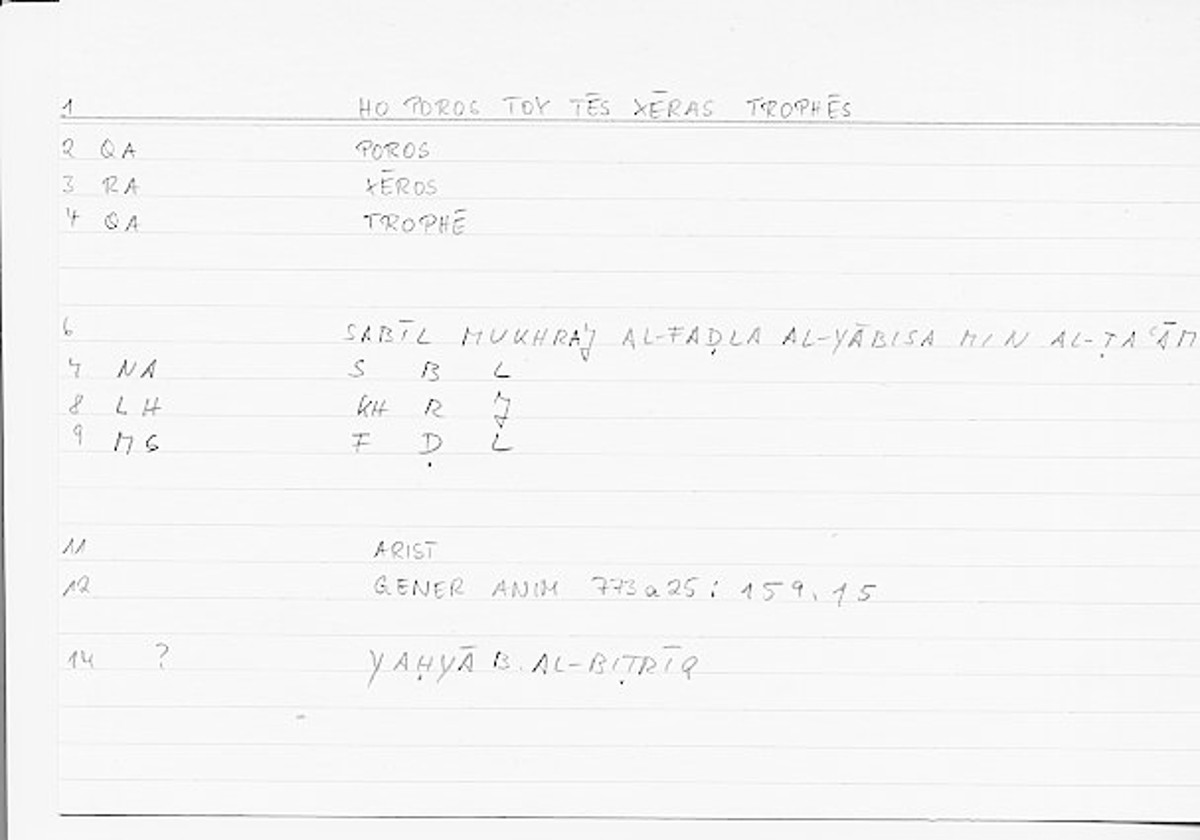 1 HO POROS TOY TĒS XĒRAS TROPHĒS
2 QA POROS
3 RA XĒROS
4 QA TROPHĒ
6 SABĪL MUKHRAJ AL-FAḌLA AL-YĀBISA MIN AL-ṬAʿĀM
7 NA S B L
8 LH KH R J
9 MG F Ḍ L
11 ARIST
12 GENER ANIM 773a25; 159.15
14 ? YAḤYĀ B. AL-BIṬRĪQ